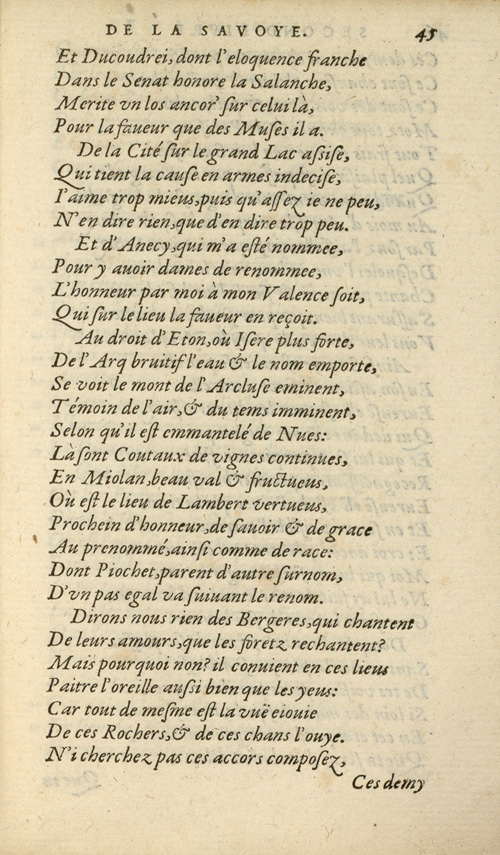 DE LA SAVOYE. 45
Et Ducoudrei, dont l'eloquence franche
Dans le Senat honore la Salanche,
Merite vn los ancor' sur celui là,
Pour la faueur que des Muses il a.
De la Cité sur le grand Lac assise,
Qui tient la cause en armes indecise,
I'aime trop mieus, puis qu'assez ie ne peu,
N'en dire rien, que d'en dire trop peu.
Et d'Anecy, qui m'a esté nommee,
Pour y auoir dames de renommee,
L'honneur par moi à mon Valence soit,
Qui sur le lieu la faueur en reçoit.
Au droit d'Eton, où Isere plus forte,
De l'Arq bruitif l'eau & le nom emporte,
Se voit le mont de l'Arcluse eminent,
Témoin de l'air, & du tems imminent,
Selon qu'il est emmantelé de Nues:
Là sont Coutaux de vignes continues,
En Miolan, beau val & fructueus,
Où est le lieu de Lambert vertueus,
Prochein d'honneur, de sauoir & de grace
Au prenommé, ainsi comme de race:
Dont Piochet, parent d'autre surnom,
D'vn pas egal va suiuant le renom.
Dirons nous rien des Bergeres, qui chantent
De leurs amours, que les foretz rechantent?
Mais pourquoi non? il conuient en ces lieus
Paitre l'oreille aussi bien que les yeus:
Car tout de mesme est la vuë eiouie
De ces Rochers, & de ces chans l'ouye.
N'i cherchez pas ces accors composez,
Ces demy